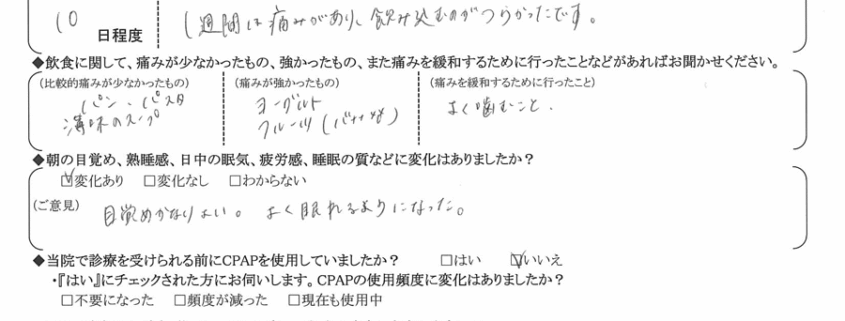 10 日程度 1週間は痛みがあり、飲み込むのがつらかったです。
◆飲食に関して、痛みが少なかったもの、強かったもの、また痛みを緩和するために行ったことなどがあればお聞かせください。
(比較的痛みが少なかったもの) (痛みが強かったもの) (痛みを緩和するために行ったこと)
パン、パスタ ヨーグルト よく噛むこと.
薄味のスープ フルーツ(バナナなど)
◆朝の目覚め、熟睡感、日中の眠気、疲労感、睡眠の質などに変化はありましたか?
☑変化あり □変化なし □わからない
(ご意見) 目覚めがかなりよい。 よく眠れるようになった。
◆当院で診療を受けられる前にCPAPを使用していましたか? □はい ☑いいえ
・『はい』にチェックされた方にお伺いします。CPAPの使用頻度に変化はありましたか?
□不要になった □頻度が減った □現在も使用中